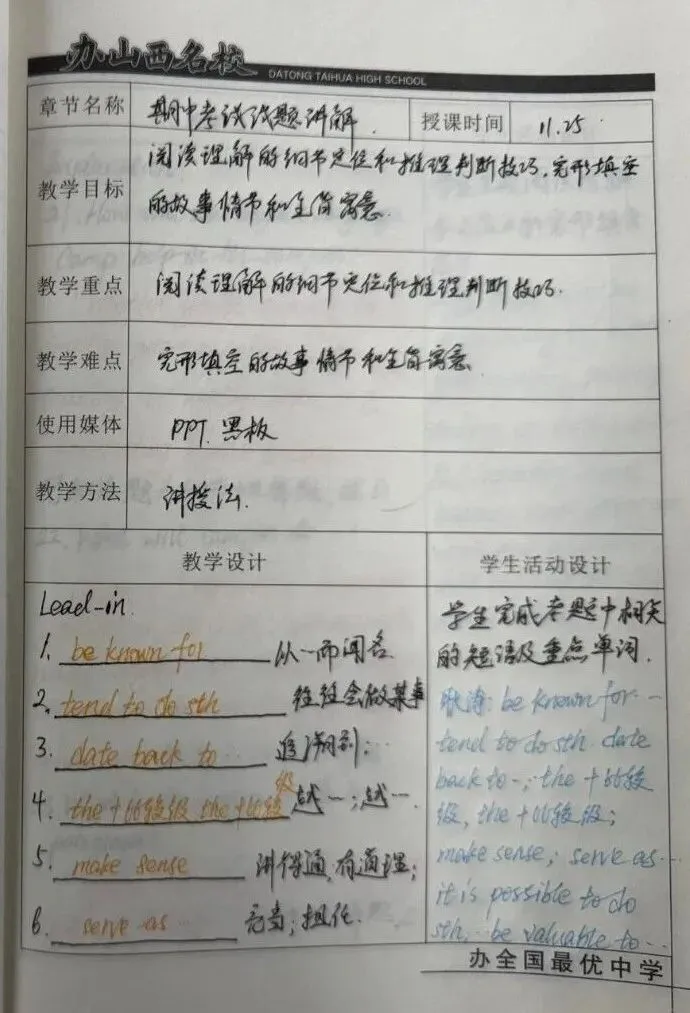 办山西名校
DATONG TAIHUA HIGH SCHOOL
章节名称 期中考试试题讲解 授课时间 11.25
教学目标 阅读理解的细节定位和推理判断技巧,完形填空
的故事情节和全篇寓意.
教学重点 阅读理解的细节定位和推理判断技巧.
教学难点 完形填空的故事情节和全篇寓意
使用媒体 PPT. 黑板
教学方法 讲授法.
教学设计 学生活动设计
Lead-in.
1. be known for 从…而闻名
2. tend to do sth 往往会做某事
3. date back to… 追溯到…
4. the+比较级 the+比较级 越…;越….
5. make sense 讲得通,有道理;
6. serve as… 充当;担任.
学生完成考题中相关
的短语及重点单词.
be known for…
tend to do sth. date
back to…; the + 比较
级, the + 比较级;
make sense; serve as…
it is possible to do
sth,… be valuable to…
办全国最优中学